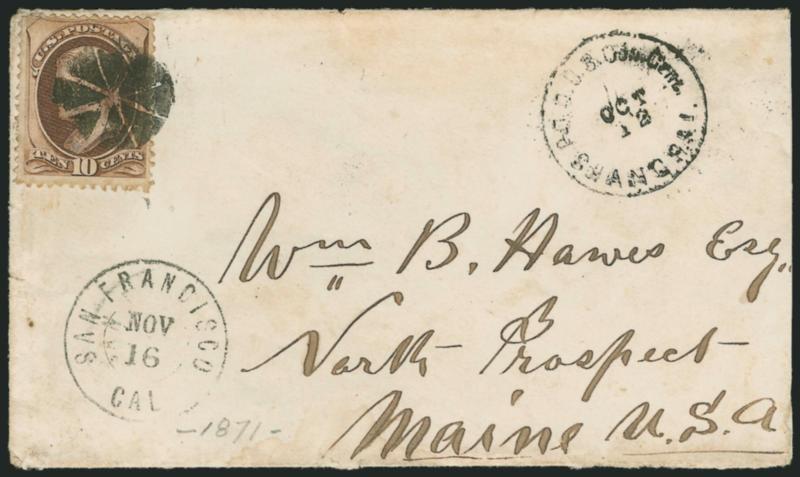 U.S. POSTAGE
TEN 10 CENTS
U.S. Con. Genl.
OCT
Wm B. Hawes Esq
North Prospect
Maine U.S.A
SAN FRANCISCO
NOV
16
CAL
-1871-